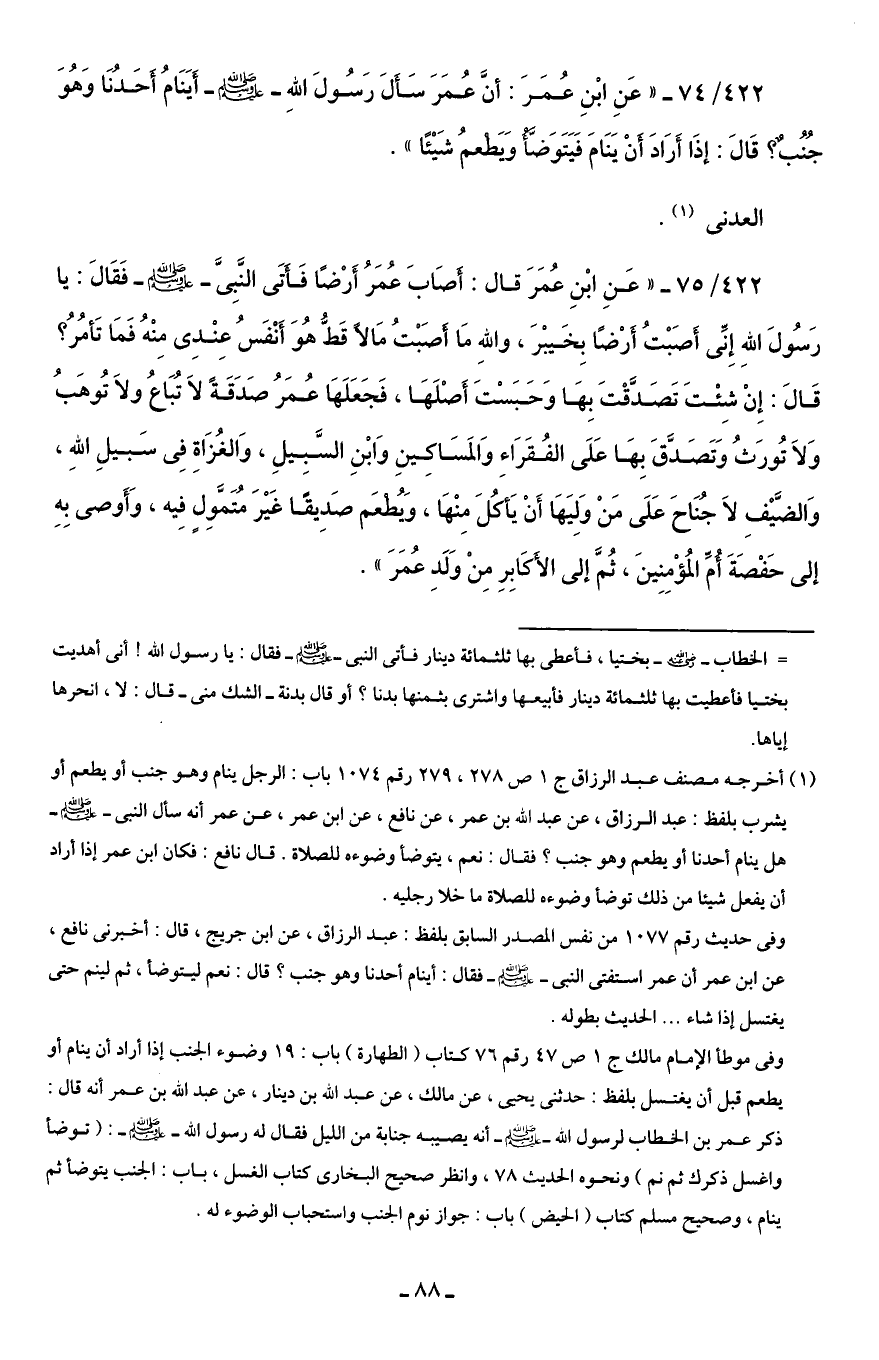 ٤٢٢/ ٧٤ ـ « عَنِ ابْنِ عُمَرَ : أنَّ عُمَرَ سَألَ رَسُولَ الله ـ ﷺ ـ أَيَنَامُ أَحَدُنَا وَهُوَ
جُنُبٌ؟ قَالَ : إذَا أَرَادَ أَنْ يَنَامَ فَيَتَوَضَّأُ وَيَطْعمُ شَيْئًا » .
العدنى (١) .
٤٢٢/ ٧٥ ـ « عَـنِ ابْنِ عُمَرَ قـال : أَصَابَ عُمَرُ أَرْضًا فَـأَتَى النَّبِىَّ ـ ﷺ ـ فَقَالَ : يا
رَسُولَ الله إِنِّى أَصَبْتُ أَرْضًا بِخَيْبَرَ ، والله مَا أصَبْتُ مَالاً قَطُّ هُوَ أَنْفَسُ عِنْدِى مِنْهُ فَمَا تَأمُرُ؟
قَـالَ : إِنْ شِئْتَ تَصَدَّقْتَ بِهَا وَحَبَسْتَ أَصْلَهَا ، فَجَعَلَهَا عُمَرُ صَدَقَةً لاَ تُبَاعُ ولاَ تُوهَبُ
وَلاَ تُورَثُ وَتَصَدَّقَ بِهَا عَلَى الفُقَرَاءِ وَالمَسَاكِينِ وَابْنِ السَّبِيلِ ، وَالغُزَاةِ فِى سَبِيلِ الله ،
وَالضَّيْفِ لاَ جُنَاحَ عَلَى مَنْ وَلِيَهَا أَنْ يَأكُلَ مِنْهَا ، وَيُطْعَم صَدِيقًا غَيْرَ مُتَمَوِّلٍ فِيه ، وَأَوصى بِهِ
إلى حَفْصَةَ أُمِّ المُؤْمِنِينَ ، ثُمَّ إلى الأَكَابِرِ مِنْ وَلَدِ عُمَرَ » .
= الخطاب ـ رضي الله عنه ـ بختيا ، فـأعطى بها ثلثمائة دينار فـأتى النبى ـ ﷺ ـ فقال : يا رسول الله ! أنى أهديت
بختيا فأعطيت بها ثلثمائة دينار فأبيعها واشترى بثمنها بدنا ؟ أو قال بدنة ـ الشك منى ـ قـال : لا ، انحرها
إياها.
(١) أخرجه مصنف عبد الرزاق ج ١ ص ٢٧٨ ، ٢٧٩ رقم ١٠٧٤ باب : الرجل ينام وهو جنب أو يطعم أو
يشرب بلفظ : عبد الرزاق ، عن عبد الله بن عمر ، عن نافع ، عن ابن عمر ، عـن عمر أنه سأل النبى ـ ﷺ ـ
هل ينام أحدنا أو يطعم وهو جنب ؟ فقال : نعم ، يتوضأ وضوءه للصلاة . قـال نافع : فكان ابن عمر إذا أراد
أن يفعل شيئا من ذلك توضأ وضوءه للصلاة ما خلا رجليه .
وفى حديث رقم ١٠٧٧ من نفس المصدر السابق بلفظ : عبـد الرزاق ، عن ابن جريج ، قال : أخبرنى نافع ،
عن ابن عمر أن عمر استفتى النبى ـ ﷺ ـ فقال : أينام أحدنا وهو جنب ؟ قال : نعم ليتوضأ ، ثم لينم حتى
يغتسل إذا شاء ... الحديث بطوله .
وفى موطأ الإمام مالك ج ١ ص ٤٧ رقم ٧٦ كتاب ( الطهارة ) باب : ١٩ وضوء الجنب إذا أراد أن ينام أو
يطعم قبل أن يغتسل بلفظ : حدثنى يحيى ، عن مالك ، عن عبد الله بن دينار ، عن عبد الله بن عمر أنه قال :
ذكر عمر بن الخطاب لرسول الله ـ ﷺ ـ أنه يصيبه جنابة من الليل فقال له رسول الله ـ ﷺ ـ : ( توضأ
واغسل ذكرك ثم نم ) ونحوه الحديث ٧٨ ، وانظر صحيح البخارى كتاب الغسل ، باب : الجنب يتوضأ ثم
ينام ، وصحيح مسلم كتاب ( الحيض ) باب : جواز نوم الجنب واستحباب الوضوء له .
ـ ٨٨ ـ